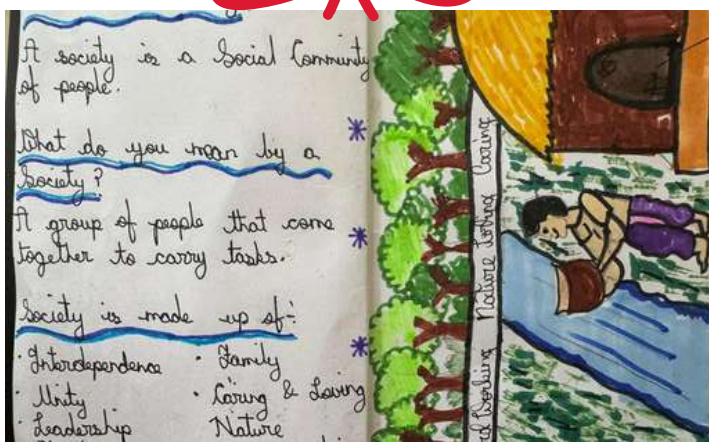 A society is a Social Community
of people.
What do you mean by a
Society?
A group of people that come
together to carry tasks.
Society is made up of:-
· Interdependence · Family
· Unity · Caring & Loving
· Leadership Nature
Working Nature Loving Caring